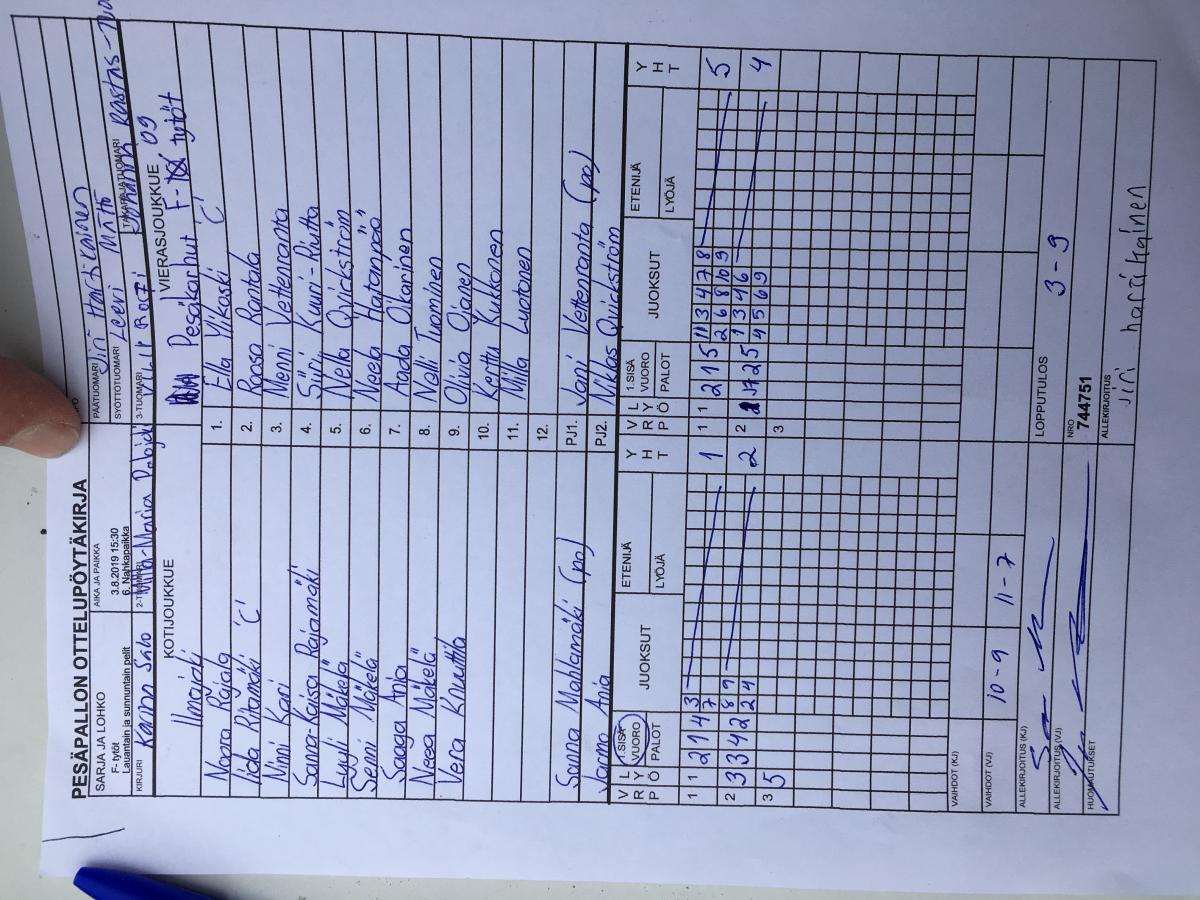 PESÄPALLON OTTELUPÖYTÄKIRJA
SARJA JA LOHKO
F- tytöt
Lauantain ja sunnuntain pelit
AIKA JA PAIKKA
3.8.2019 15:30
6. Nahkapaikka
PÄÄTUOMARI
Jiri Harjukainen
SYÖTTÖTUOMARI Leevi Mättö
TAKARAJATUOMARI
KIRJURI Karina Salo
2-TUOMARI
3-TUOMARI
KOTIJOUKKUE
Ilmajoki
VIERASJOUKKUE
Pesäkarhut F- tytöt 09
Noora Rajala 1. Ella Ylikoski C
Iida Ritamäki C 2. Roosa Rantala
Ninni Kari 3. Menni Vettenranta
Sanna-Kaisa Rajamäki 4. Siiri Kuuri-Riutta
Lyyli Mäkelä 5. Nella Quickström
Senni Mäkelä 6. Neela Hatanpää
Saaga Ania 7. Aada Oikarinen
Neea Mäkelä 8. Nelli Tuominen
Vera Knuuttila 9. Olivia Ojanen
10. Kerttu Kukkonen
11. Milla Luotonen
12.
Sanna Mahlamäki (po) PJ1. Jani Vettenranta (po)
Jarmo Ania PJ2. Niklas Quickström
VRP LYÖ 1.SISÄ VUORO PALOT JUOKSUT ETENIJÄ LYÖJÄ YHT
VRP LYÖ 1.SISÄ VUORO PALOT JUOKSUT ETENIJÄ LYÖJÄ YHT
1 1 2 1 4 3 7 1
1 1 2 1 5 11 3 4 7 8 2 6 8 10 9 5
2 3 3 4 2 8 9 2 4 2
2 17 2 5 1 3 4 6 4 5 6 9 4
3 5
3
VAIHDOT (KJ)
VAIHDOT (VJ) 10-9 11-7
LOPPUTULOS 3-9
ALLEKIRJOITUS (KJ)
ALLEKIRJOITUS (VJ)
NRO
744751
HUOMAUTUKSET
ALLEKIRJOITUS
Jiri